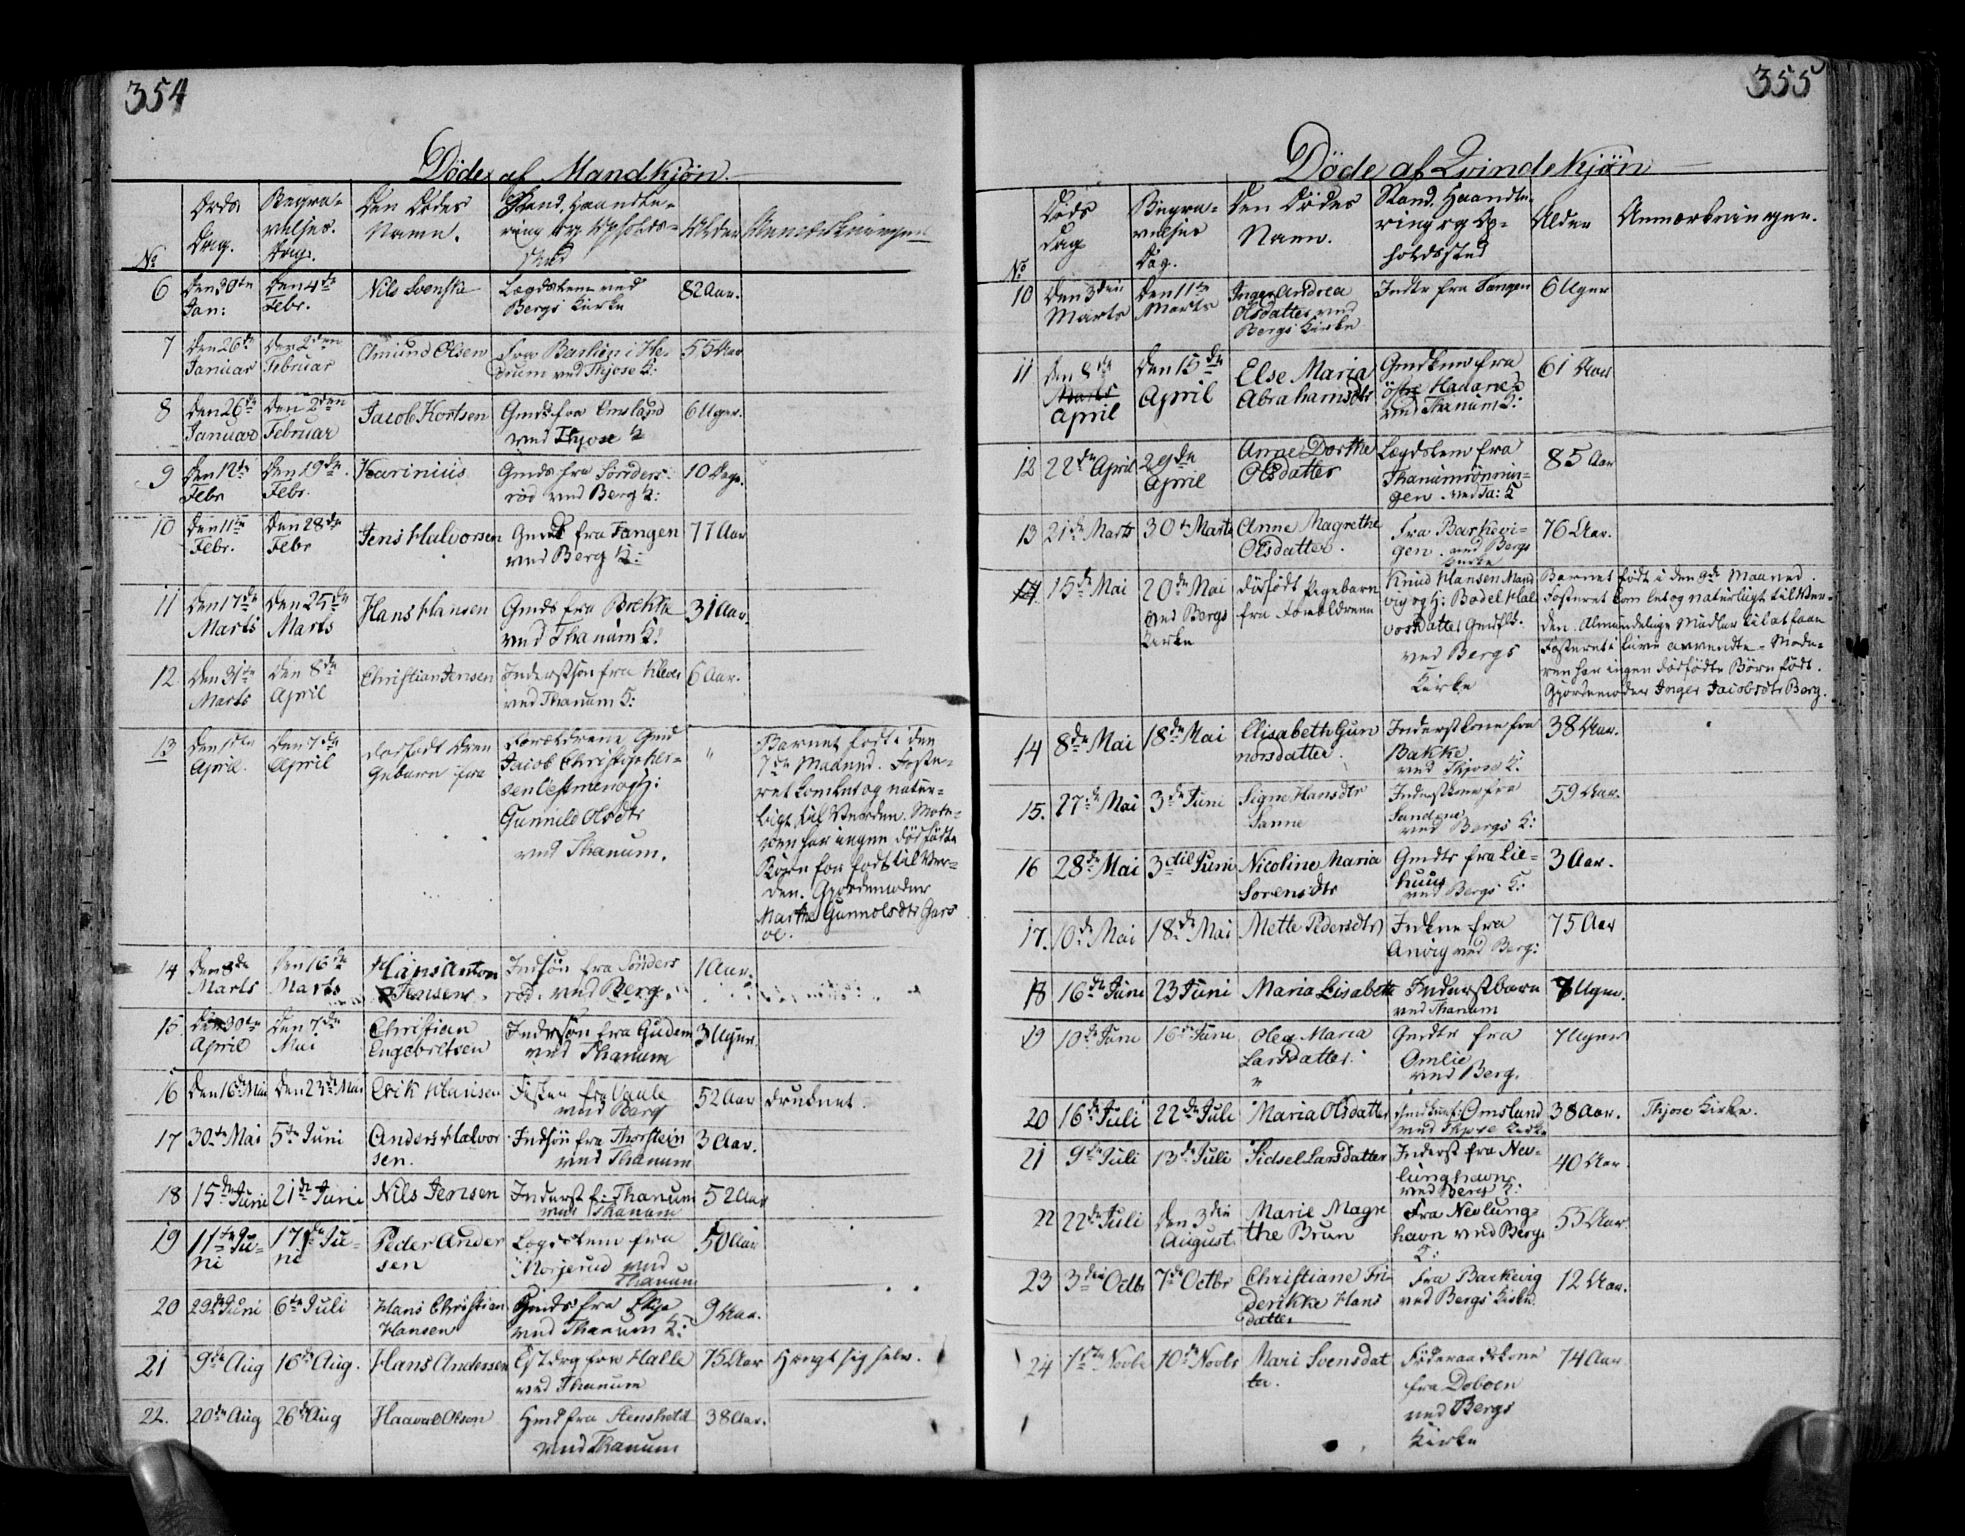 354
Døde af Mandkjøn.
No
Døds
Dag.
Begra-
velses.
Dag.
Den Dødes
Navn.
Stand, Haandte-
ring og Opholds-
sted
Alder
Anmærkninger
6
Den 30te
Jan:
Den 4de
Febr.
Nils Svenske
Lægdslem ved
Bergs Kirke
82 Aar.
7
Den 26de
Januar
Den 2den
Februar
Amund Olsen
Fra Barkin i He-
drum ved Thjose K:
55 Aar
8
Den 26de
Januar
Den 2den
Februar
Jacob Kortsen
Gmds fra Omsland
ved Thjose K
6 Uger.
9
Den 12te
Febr
Den 19de
Febr.
Karinius
Gmds fra Sønders-
rød ved Berg K:
10 Dage.
10
Den 11te
Febr.
Den 28de
Febr
Jens Halvorsen
Gmd fra Tangen
ved Berg K:
77 Aar
11
Den 17de
Marts
Den 25de
Marts
Hans Hansen
Gmds fra Brekke
ved Thanum K:
31 Aar.
12
Den 31te
Marts
Den 8de
April
Christian Jensen
Inderstsøn fra Klever
ved Thanum K:
6 Aar.
13
Den 1ste
April.
Den 7de
April
Dødfødt Dren
gebarn fra
Forældrene Gmd
Jacob Christopher-
sen Vestmen og H:
Gunnild Olsdtr
ved Thanum.
"
Barnet født i den
7de Maaned. Foste-
ret kom let og natur-
ligt til Verden. Mode-
ren har ingen dødfødte
Børn før født til Ver-
den. Gjordemoder
Marthe Gunnolsdtr Gars
ol.
14
Den 8de
Marts
Den 16de
Marts
Hans Anton
Jensen.
Indsøn fra Sönders
rød. ved Berg.
1 Aar.
15
Den 30te
April
Den 7de
Mai
Christian
Engebretsen
Indrsøn fra Gudem
ved Thanum
3 Uger.
16
Den 16de Mai
Den 23de Mai
Erik Hansen
Fisker fra Vaale
ved Berg
52 Aar
druknet.
17
30te Mai
5te Juni
Anders Halvor
sen.
Indsön fra Thorstein
ved Thanum
3 Aar.
18
15de Juni
21de Juni
Nils Jensen
Inderst f. Thanum
ved Thanum
52 Aar
19
11te Ju-
ni
17de Ju-
ni
Peder Ander
sen
Lægdslem fra
Norjerud ved
Thanum
50 Aar
20
29de Juni
6te Juli
Hans Christian
Hansen
Gmds fra Skje
ved Thanum K:
9 Aar.
21
9de Aug
16de Aug.
Hans Andersen
fra Halle
ved Thanum
75 Aar
Hængt sig selv.
22.
20de Aug
26de Aug
Haavol Olsen
Hmd fra Stensholt
ved Thanum
38 Aar.
355
Døde af Qvindekjøn
No
Døds
Dag
Begra-
velses
Dag.
Den Dödes
Navn.
Stand. Haandte-
ring og Op-
holdssted
Alder
Anmærkninger.
10
Den 3die
Marts
Den 11te
Marts
Inger Andrea
Olsdatter ved
Bergs Kirke
Indtr fra Tangen
6 Uger
11
Den 8de
Marts
April
Den 15de
April
Else Maria
Abrahamsdtr
Gmdkone fra
Östre Hadane
ved Thanum K:
61 Aar
12
22de April
29de
April
Anne Dorthe
Olsdatter
Lægdslem fra
Thanumrönnin-
gen. ved Ta: K
85 Aar
13
21de Marts
30te Marts
Anne Magrethe
Olsdatter.
Fra Barkevi-
gen. ved Bergs
Kirke
76 Aar.
14
15de Mai
20de Mai
ved Bergs
Kirke
dödfödt Pigebarn
fra Forældrene
Knud Hansen Mand
vig og H: Bodel Hal
vorsdatter Gmdflk.
ved Bergs
Kirke
Barnet født i den 9de Maaned.
Fosteret kom let og naturligt til Ver-
den. Almindelige Midler til at faae
Fosteret i live anvendte. Mode-
ren har ingen dødfødte Børn født.
Gjordemoder Inger Jacobsdtr Berg.
14
8de Mai
18de Mai
Elisabeth Gun
norsdatter.
Inderstkone fra
Bakke
ved Thjose K:
38 Aar.
15.
27de Mai
3de Juni
Signe Hansdtr
Sanne
Inderstkone fra
Sandene
ved Bergs K:
59 Aar.
16
28de Mai
3die Juni
Nicoline Maria
Sorensdtr
Gmdtr fra Lie-
huus
ved Bergs K:
3 Aar.
17.
10de Mai
18de Mai
Mette Pedersdtr
Indkone fra
Anvig ved Berg:
75 Aar
18
16de Juni
23 Juni
Maria Lisabeth
Inderstbarn
ved Thanum
7 Uger.
19
10de Juni
16de Juni
Olea Maria
Larsdatter.
Gmdtr fra
Omlie
ved Berg.
7 Uger
20
16de Juli
22de Juli
Maria Olsdatter
Gmdkone f: Omsland
ved Thjose Kirke
38 Aar.
Thjose Kirke.
21
9de Juli
13de Juli
Sidsel Larsdatter
Inderst fra Nev-
lunghavn
ved Bergs K:
40 Aar.
22
22de Juli
Den 3die
August.
Marie Magre
the Brun
Fra Nevlung-
havn ved Bergs
K:
53 Aar
23
3die Octbr
7de Octbr
Christiane Fri-
derikke Hans
datter
Fra Barkevig
ved Bergs Kirke
12 Aar.
24
1ste Novbr
10de Novbr
Mari Svensdat
ter.
Föderaadskone
fra Doboen
ved Bergs
Kirke
74 Aar